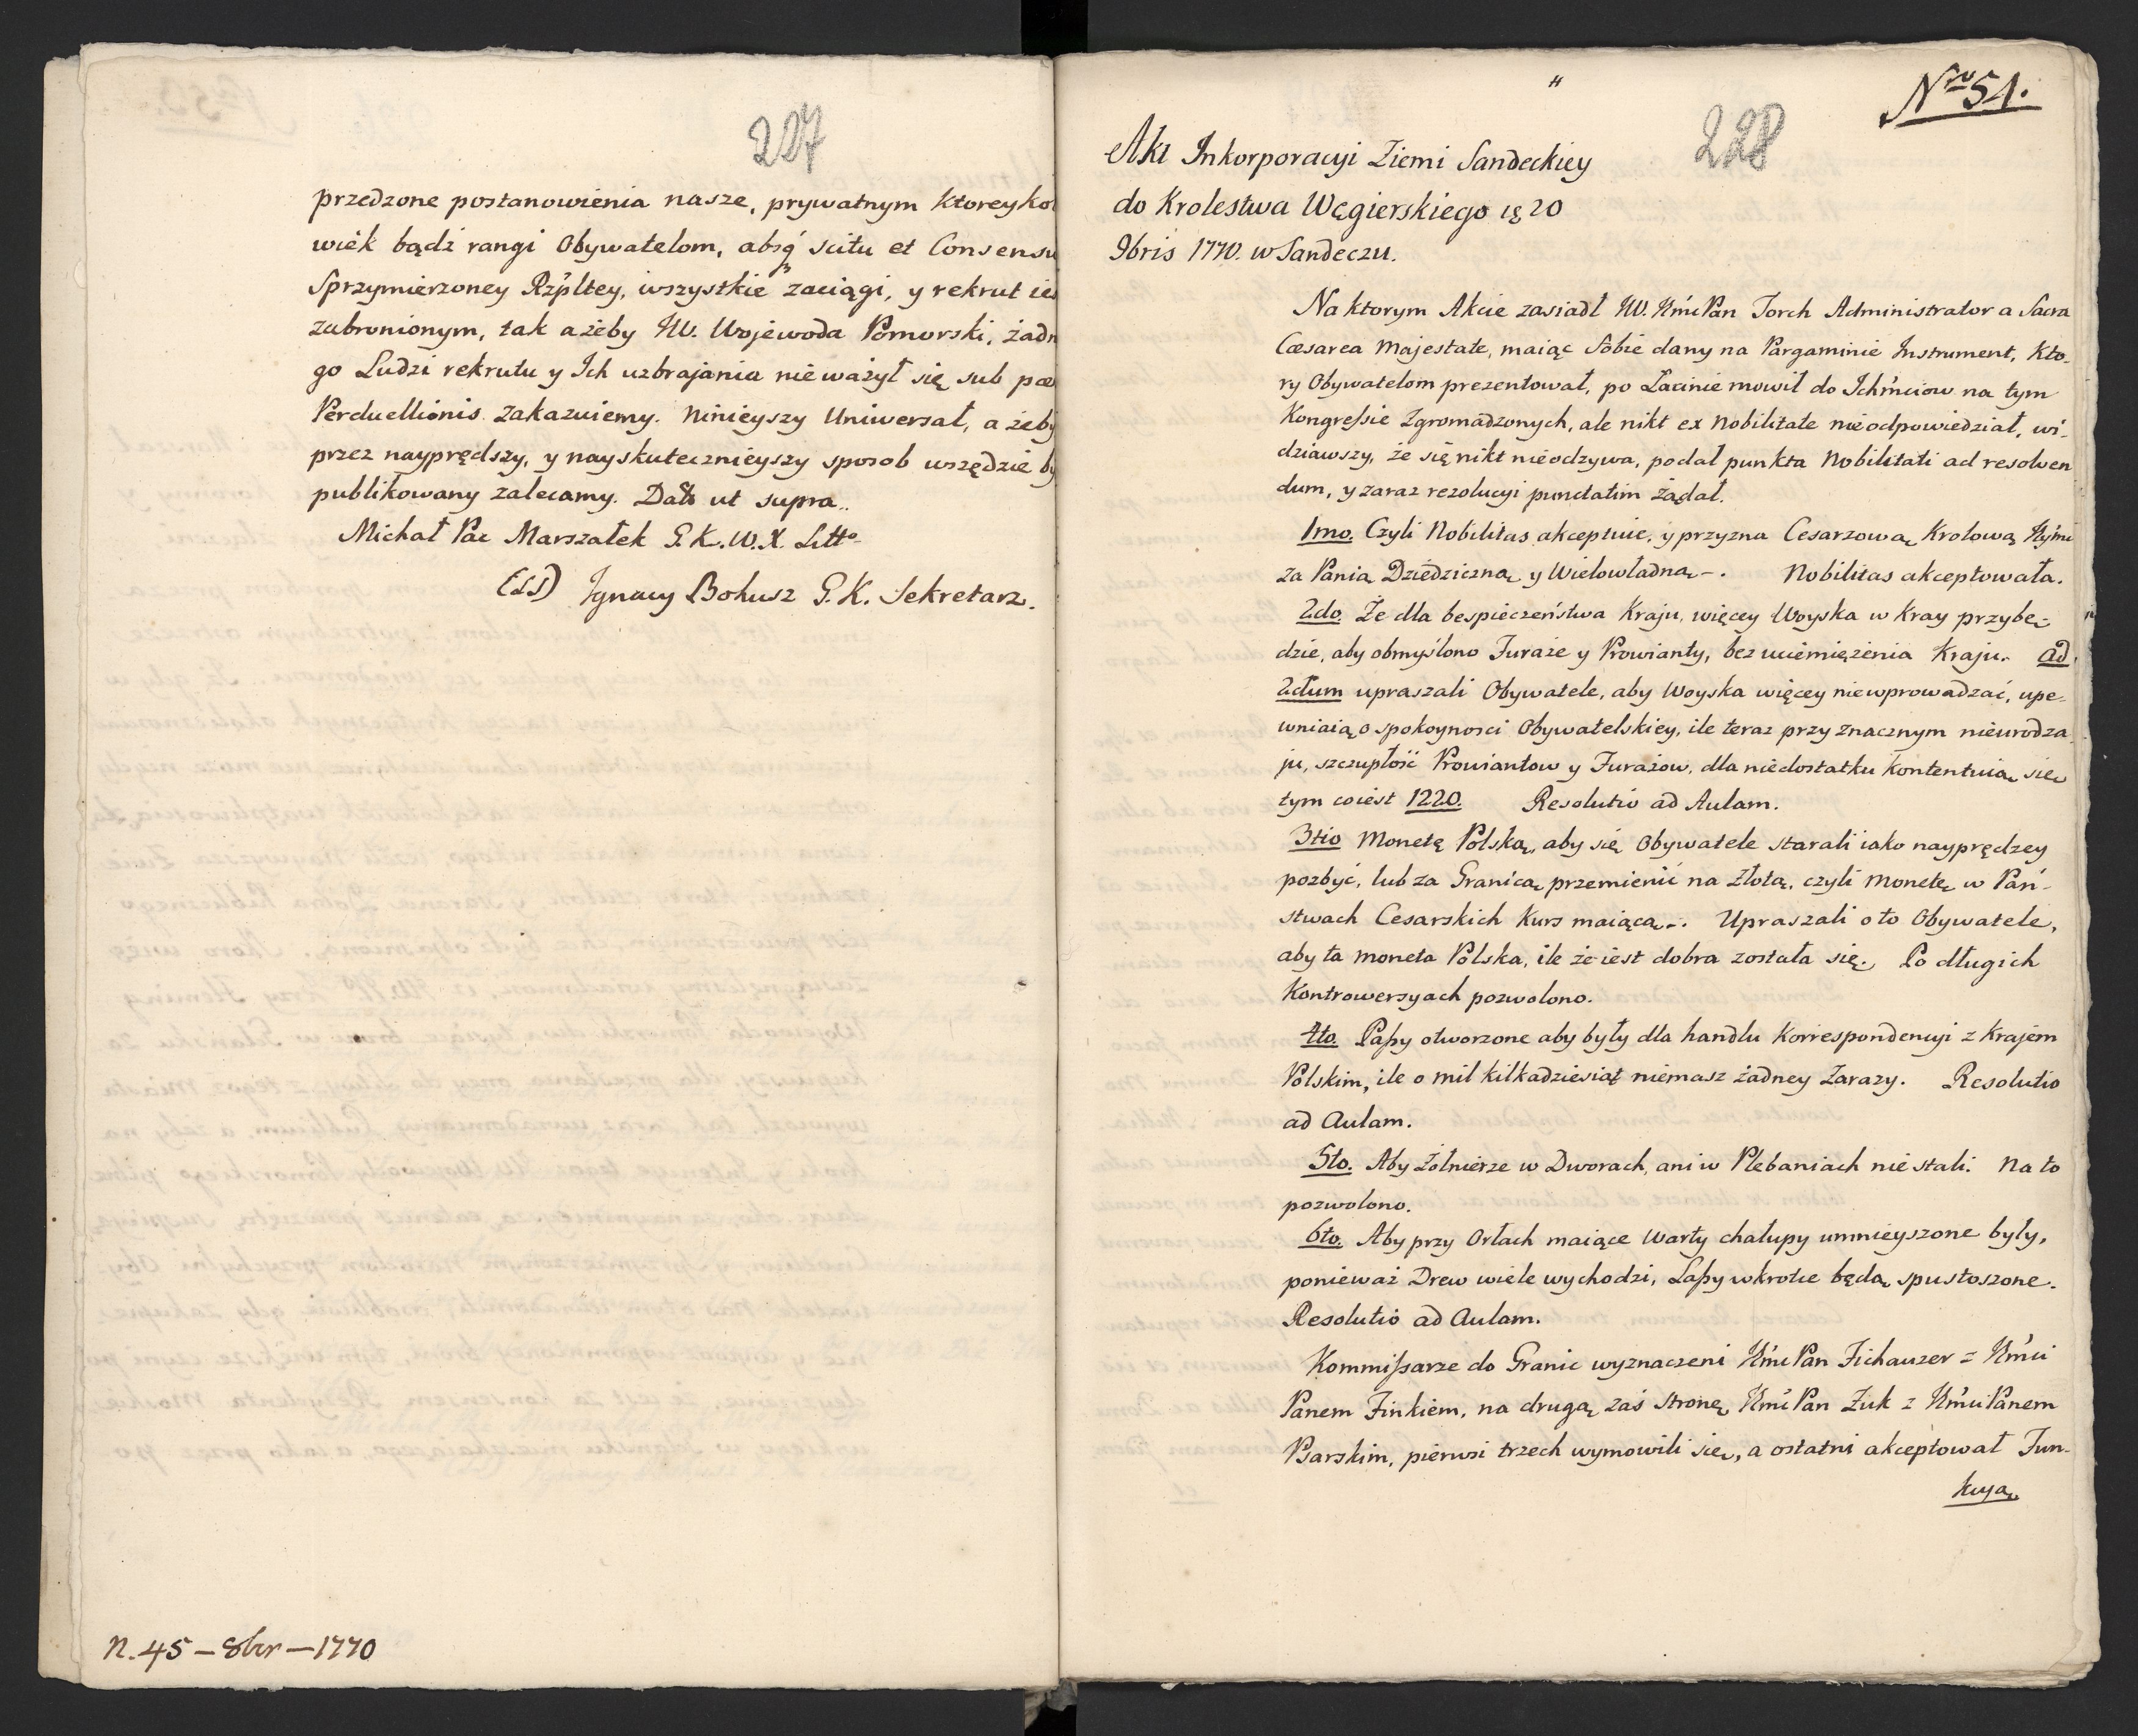 227
przedzone postanowienia nasze, prywatnym ktoreyko
wiek bądź rangi Obywatelom, absq́ scitu et Consensu
Sprzymierzoney Rzṕltey, wszystkie zaciągi, y rekrut ies
zabronionym, tak ażeby JW. Wojewoda Pomorski, żadn
go Ludzi rekrutu y Ich uzbrajania nie ważył się sub pæ
Perduellionis zakazuiemy. Ninieyszy Uniwersał, a żeby
przez nayprędszy, y nayskutecznieyszy sposob wszędzie by
publikowany zalecamy. Datt ut supra..
Michał Pac Marszałek G.K.W.X. Litto
(LS) Ignacy Bohusz G.K. Sekretarz.
n. 45 – 8br – 1770
Nro 51.
228
Akt Inkorporacyi Ziemi Sandeckiey
do Krolestwa Węgierskiego 20
9bris 1770. w Sandeczu.
Na ktorym Akcie zasiadł JW. JmćPan Torch Administrator a Sacra
Cæsarea Majestate, maiąc Sobie dany na Pargaminie Instrument, kto-
ry Obywatelom prezentował, po Łacinie mowił do Ichmciow na tym
Kongressie zgromadzonych, ale nikt ex Nobilitate nieodpowiedział, wi-
dziawszy, że się nikt nieodzywa, podał punkta Nobilitati ad resolven
dum, y zaraz rezolucyi punctatim żądał.
1mo. Czyli Nobilitas akceptuie, y przyzna Cesarzową Krolową Jḿci
za Panią Dziedziczną y Wielowładną –. Nobilitas akceptowała.
2do. Że dla bespieczeństwa Kraju, więcey Woyska w Kray przybę-
dzie, aby obmyślono Furaże y Prowianty, bez uciemiężenia Kraju. Ad
2dum upraszali Obywatele, aby Woyska więcey niewprowadzać, upe-
wniaią o spokoynosci Obywatelskiey, ile teraz przy znacznym nieurodza
ju, szczupłość Prowiantow y Furażow, dla niedostatku kontentuią się
tym co iest 1220. Resolutio ad Aulam.
3tio Monetę Polską, aby się Obywatele starali iako nayprędzey
pozbyć, lub za Granicą przemienić na złotą, czyli monetę w Pań-
stwach Cesarskich Kurs maiącą –. Upraszali o to Obywatele,
aby ta moneta Polska, ile że iest dobra została się. Po długich
Kontrowersyach pozwolono.
4to. Passy otworzone aby były dla handlu korrespondencyi z Krajem
Polskim, ile o mil kilkadziesiąt niemasz żadney zarazy. Resolutio
ad Aulam.
5to. Aby Żołnierze w Dworach, ani w Plebaniach nie stali. Na to
pozwolono.
6to. Aby przy Orłach maiące Warty chałupy umnieyszone były,
ponieważ Drew wiele wychodzi, Lassy wkrotce będą spustoszone.
Resolutio ad Aulam.
Kommissarze do Granic wyznaczeni JmćPan Fichauzer z Jmći
Panem Finkiem, na drugą zaś Stronę JmćPan Żuk z JmciPanem
Psarskim, pierwsi trzech wymowili się, a ostatni akceptował Fun-
kcyą